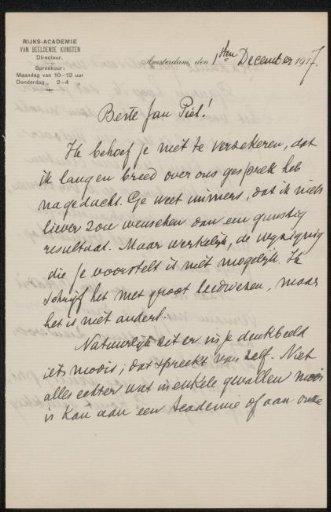 RIJKS-ACADEMIE
VAN BEELDENDE KUNSTEN
Directeur.
Spreekuur:
Maandag van 10-12 uur
Donderdag " 2-4 "
Amsterdam, den 1sten December 1917.
Beste Jan Piet!
Ik behoef je niet te verzekeren, dat
ik lang en breed over ons gesprek heb
nagedacht. Ge weet immers, dat ik niets
liever zou wenschen dan een gunstig
resultaat. Maar werkelijk, de wijziging
die je voorstelt is niet mogelijk. Ik
schrijf het met groot leedwezen, maar
het is niet anders.
Natuurlijk zit er in je denkbeeld
iets moois; dat spreekt van zelf. Niet
alles echter wat in enkele gevallen mooi
is kan aan een Academie of aan onze